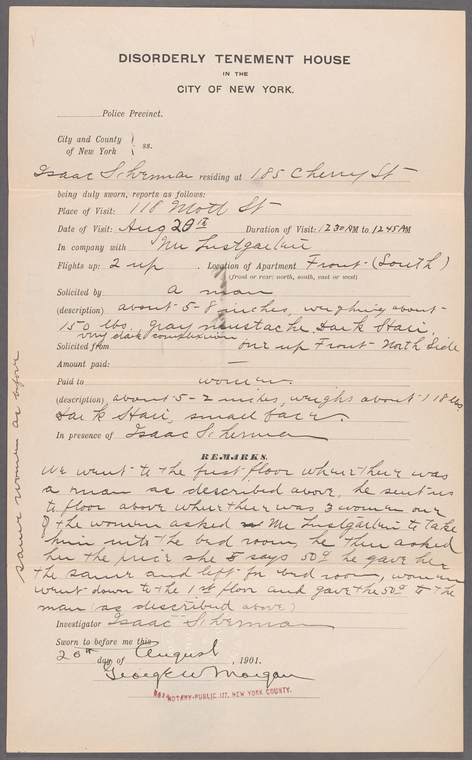 DISORDERLY TENEMENT HOUSE
IN THE
CITY OF NEW YORK.
Police Precinct.
City and County
of New York } ss.
Isaac Silverman residing at 185 Cherry St
being duly sworn, reports as follows:
Place of Visit: 118 Mott St
Date of Visit: Aug 20 Duration of Visit: 12 30 AM to 12 45 AM
In company with Mr Lustgarten
Flights up: 2 up. Location of Apartment Front (South)
(front or rear; north, south, east or west)
Solicited by a man
(description) about 5-8 inches, weighing about
150 lbs, gray mustache, Dark Hair,
very dark complexion
Solicited from one up Front North Side
Amount paid: —
Paid to women.
(description) about 5-2 inches, weighs about 118 lbs
Dark Hair, small face.
In presence of Isaac Silverman
REMARKS.
We went to the first floor where there was
a man as described above, he sent us
to floor above where there was 3 women one
of the women asked Mr Lustgarten to take
him into the bed room, he then asked
her the price she says 50¢ he gave her
the same and left for bed room, women
went down to the 1st floor and gave the 50¢ to the
man (as described above)
same women as before
Investigator Isaac Silverman
Sworn to before me this
20th day of August, 1901.
George W Morgan
NOTARY PUBLIC 177, NEW YORK COUNTY.